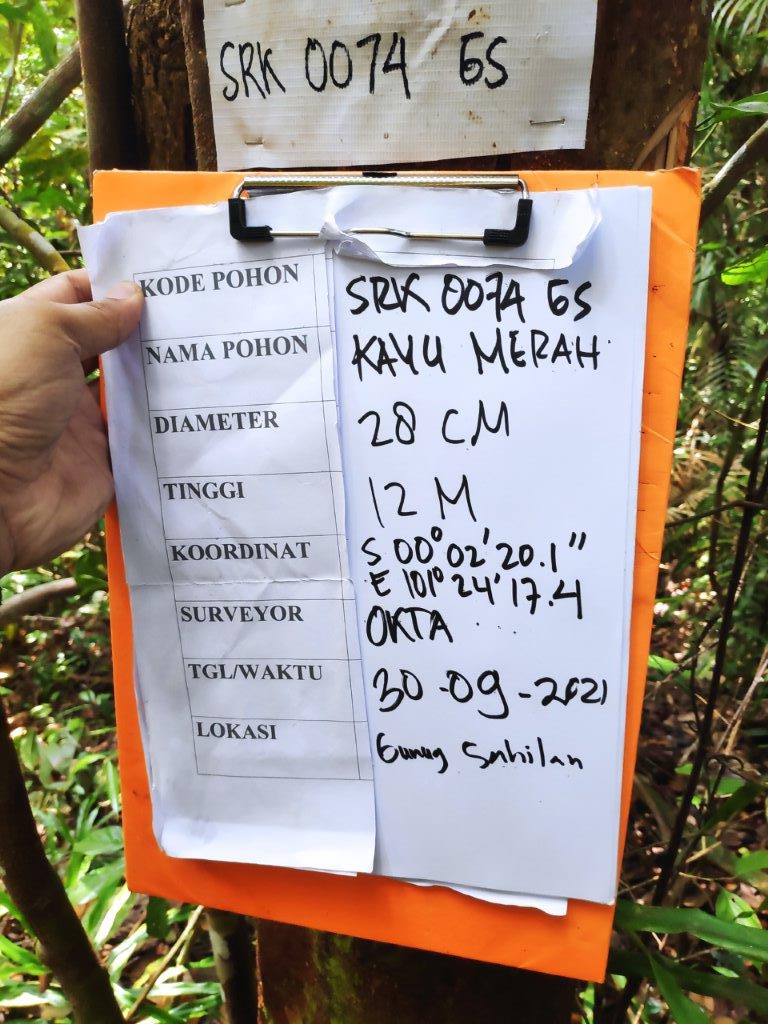 SRK 0074 GS
KODE POHON SRK 0074 GS
NAMA POHON KAYU MERAH
DIAMETER 28 CM
TINGGI 12 M
KOORDINAT S 00° 02' 20.1"
E 101° 24' 17.4
SURVEYOR OKTA
TGL/WAKTU 30-09-2021
LOKASI Gunug Sahilan